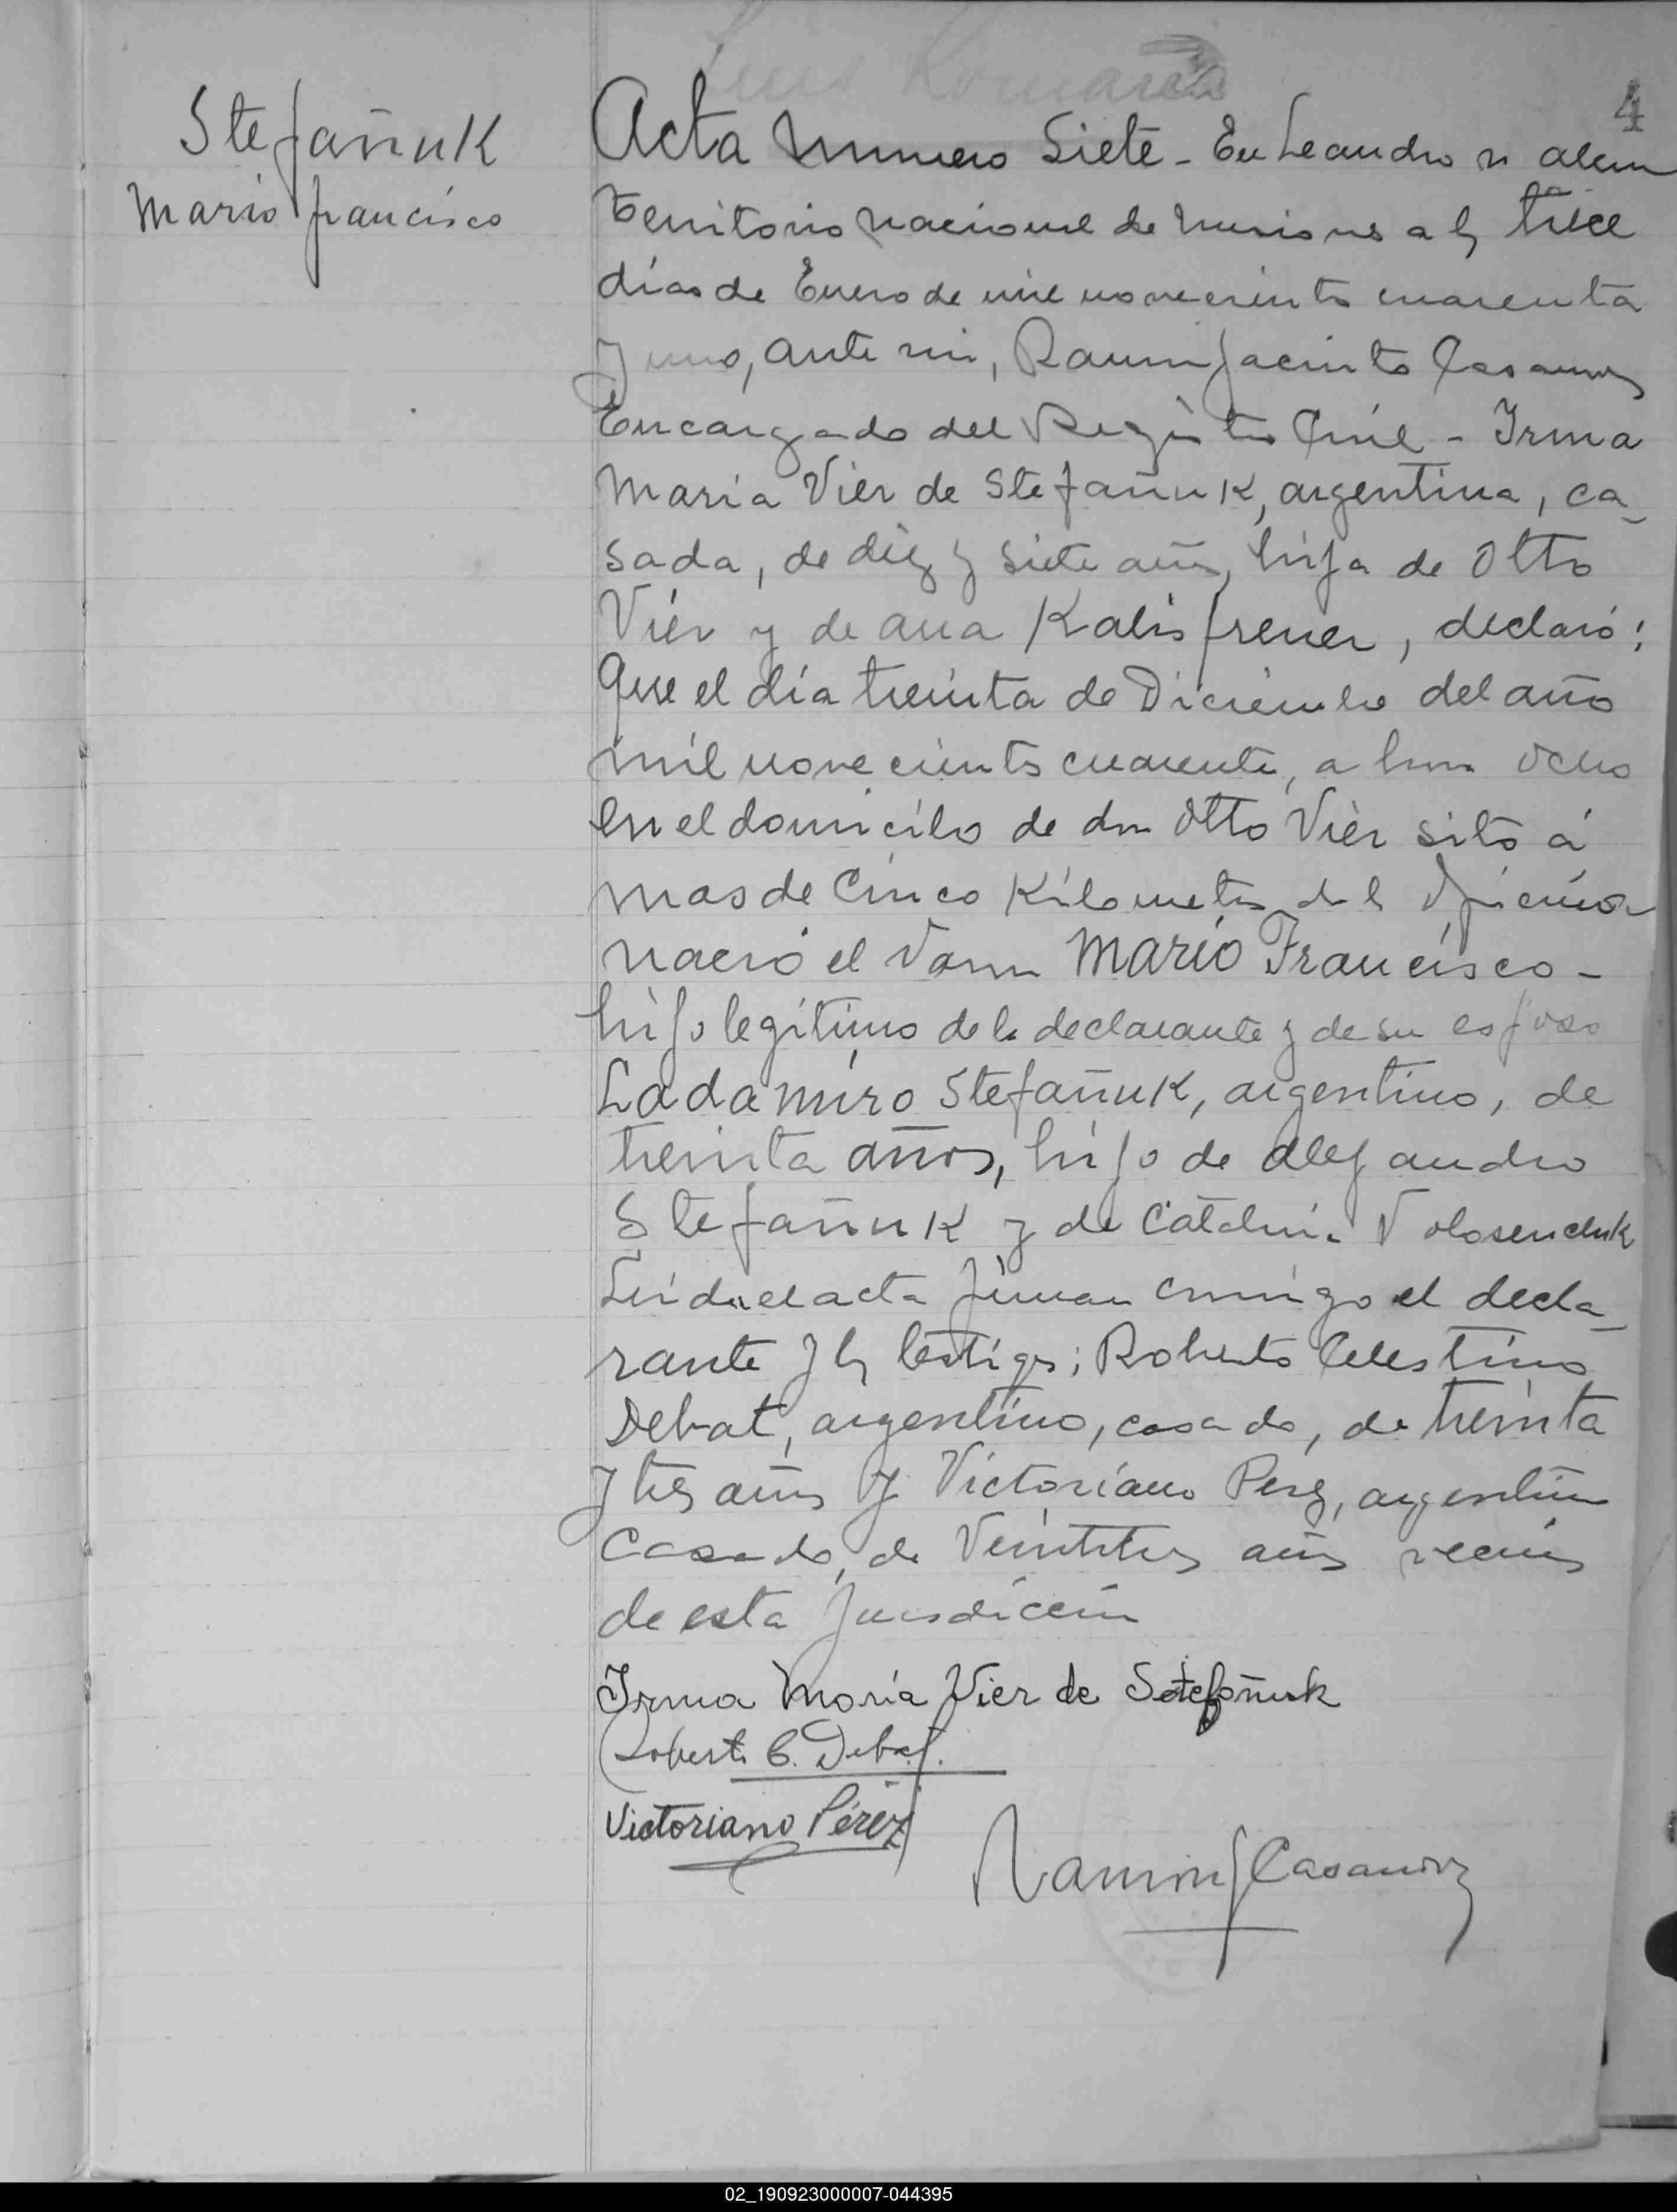 4
Stefañuk
Mario francisco
Acta Numero Siete - En Leandro n alem
Territorio Nacional de Misiones a los trece
días de Enero de mil novecientos cuarenta
y uno, ante mi, Ramon Jacinto Casanova
Encargado del Registro Civil - Irma
Maria Vier de Stefañuk, argentina, ca_
sada, de diez y siete años, hija de Otto
Vier y de ana Kalisfrener, declaró:
Que el día treinta de Diciembre del año
mil novecientos cuarenta, a hora ocho
en el domicilio de don Otto Vier sito á
mas de Cinco Kilometros de la oficina
nació el varon MARIO Francisco -
hijo legitimo de la declarante y de su esposo
Ladamiro Stefañuk, argentino, de
treinta años, hijo de alejandro
Stefañuk y de Catalina Volosenchuk
Leida el acta firman conmigo el decla_
rante y los testigos: Roberto Celestino
Debat, argentino, casado, de treinta
y tres años y Victoriano Perez, argentino
Casado, de Veintitres años vecinos
de esta Jurisdiccion
Irma Maria Vier de Stefañuk
Roberto C. Debat.
Victoriano Pérez
Ramon J Casanova
02_190923000007-044395